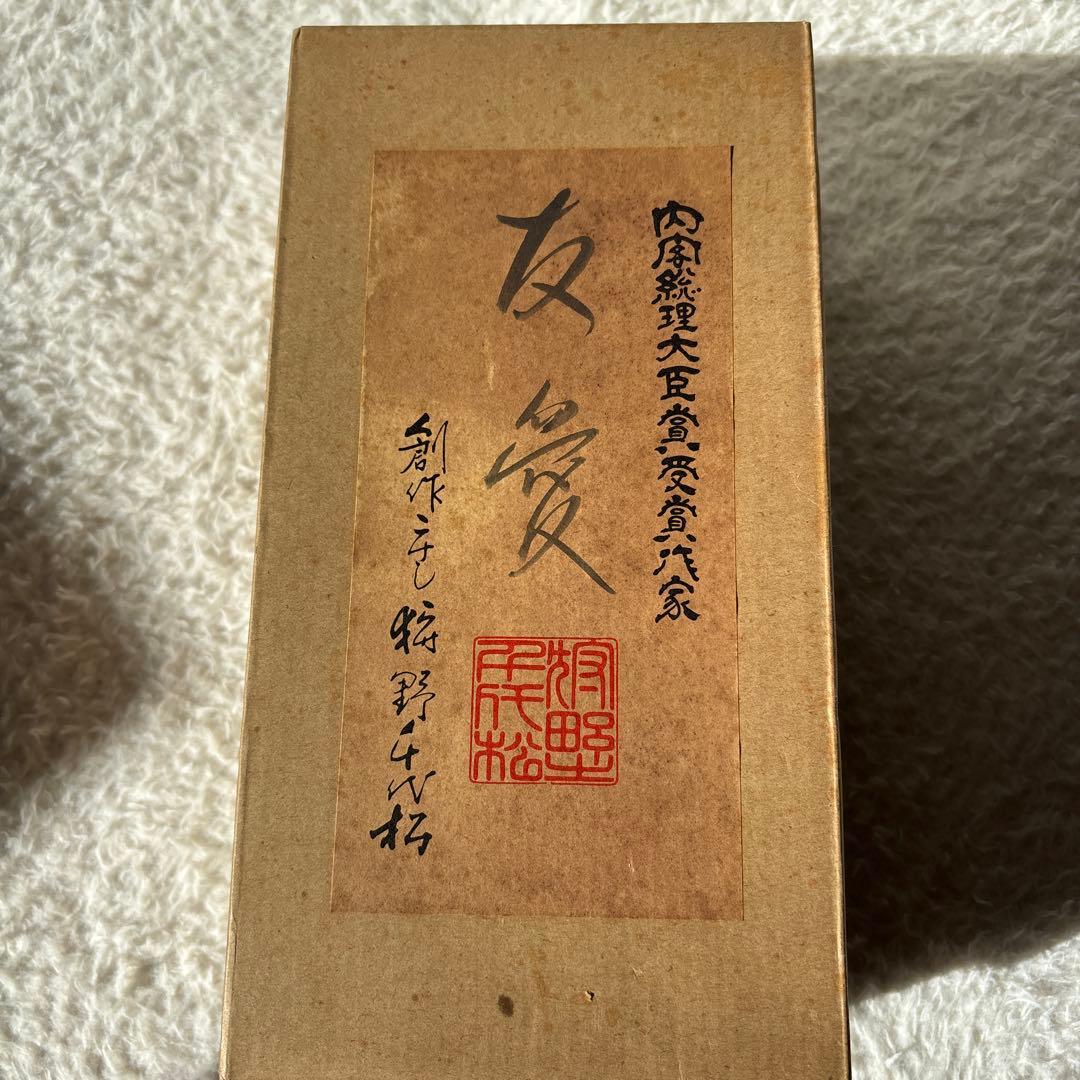 内閣総理大臣賞受賞作家
友愛
創作こけし 狩野千代松
狩野
千代松